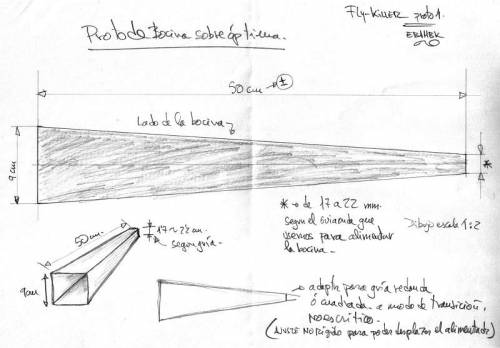 Proto de Bocina sobre óptima.
Fly-Killer proto 1.
EB1HBK
50 cm ±
Lado de la bocina
9 cm
*
* → de 17 a 22 mm.
segun el guiaonda que
usemos para alimentar
la bocina.
Dibujo escala 1:2
50 cm.
17~22 cm.
segun guía.
9 cm
→ adapta para guía redonda
ó cuadrada a modo de transición,
no es critico.
(AJUSTE NO Rigido para poder desplazar el alimentador)